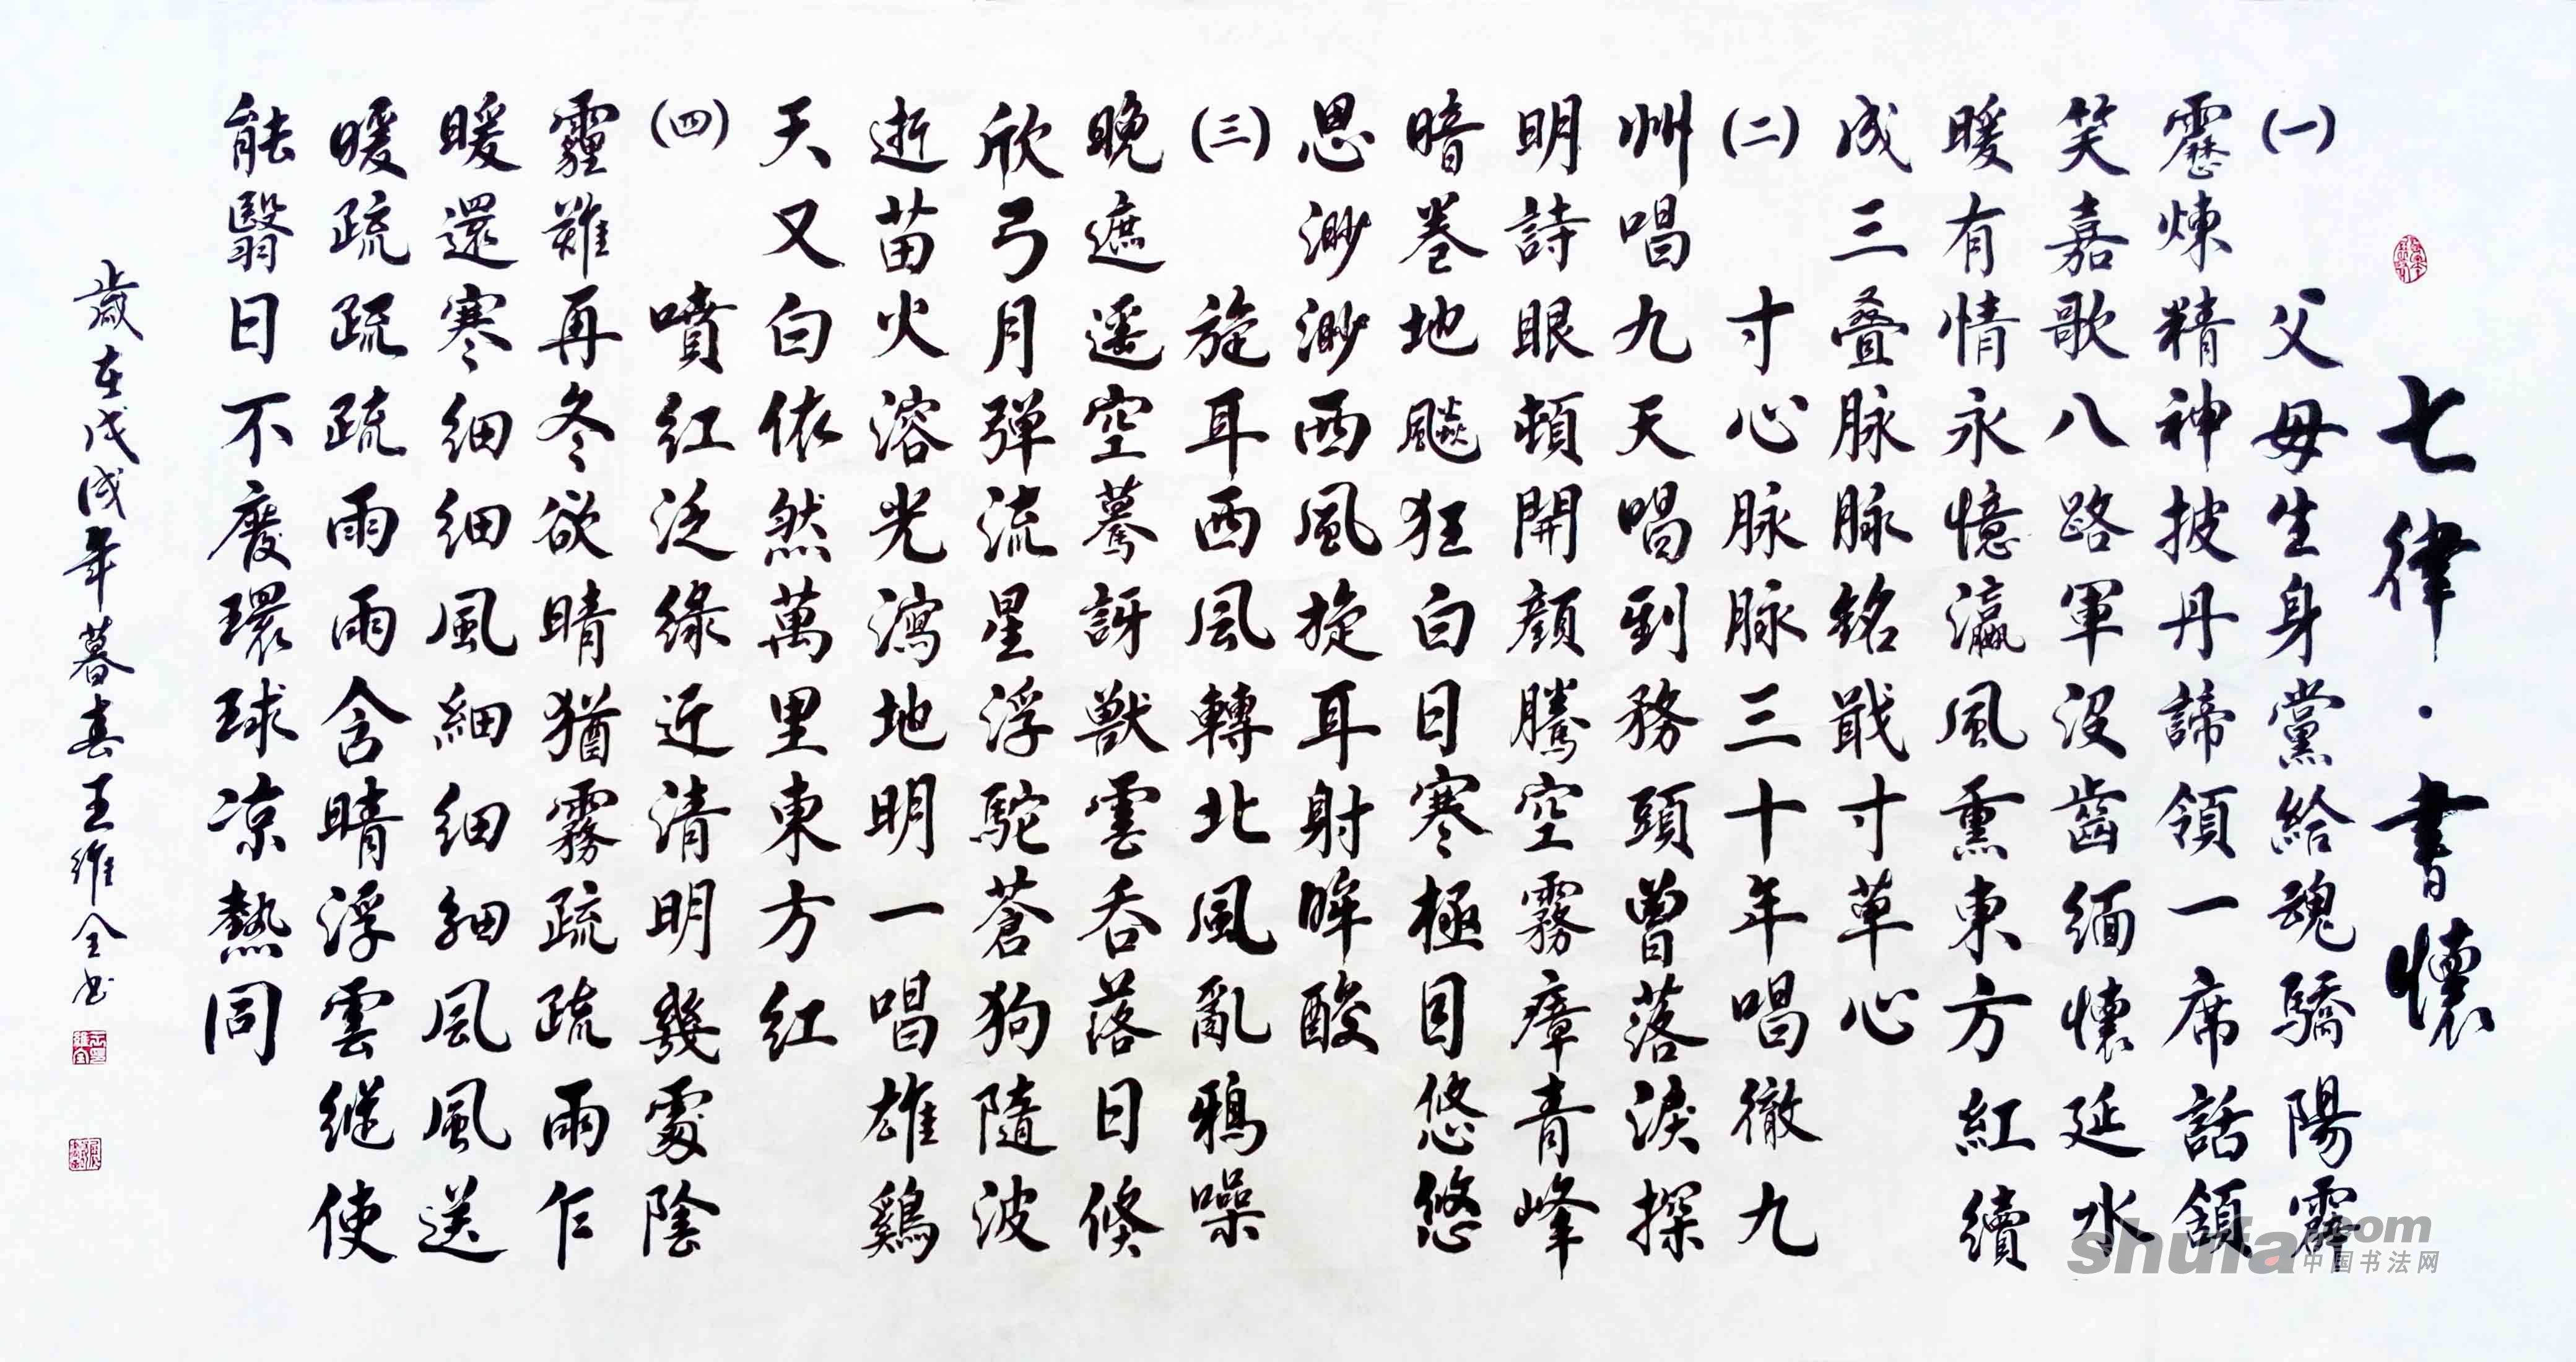 七律·書懷
(一) 父母生身黨給魂驕陽霹
靂煉精神披丹諦領一席話頷
笑嘉歌八路軍没齒緬懷延水
暖有情永憶瀛風熏東方紅續
成三叠脉脉銘戢寸草心
(二) 寸心脉脉三十年唱徹九
州唱九天唱到務頭曾落淚探
明詩眼頓開顔騰空霧瘴青峰
暗卷地飈狂白日寒極目悠悠
思渺渺西風旋耳射眸酸
(三) 旋耳西風轉北風亂鴉噪
晚遮遥空驀訝獸雲吞落日倏
欣弓月弹流星浮駝蒼狗隨波
逝苗火溶光瀉地明一唱雄鷄
天又白依然萬里東方紅
(四) 噴紅泛緑近清明幾處陰
霾難再冬欲晴猶霧疏疏雨乍
暖還寒細細風細細細風風送
暖疏疏疏雨雨含晴浮雲縱使
能翳日不废環球凉熱同
歲在戊戌年暮春王維全书
shufa.com
中国书法网